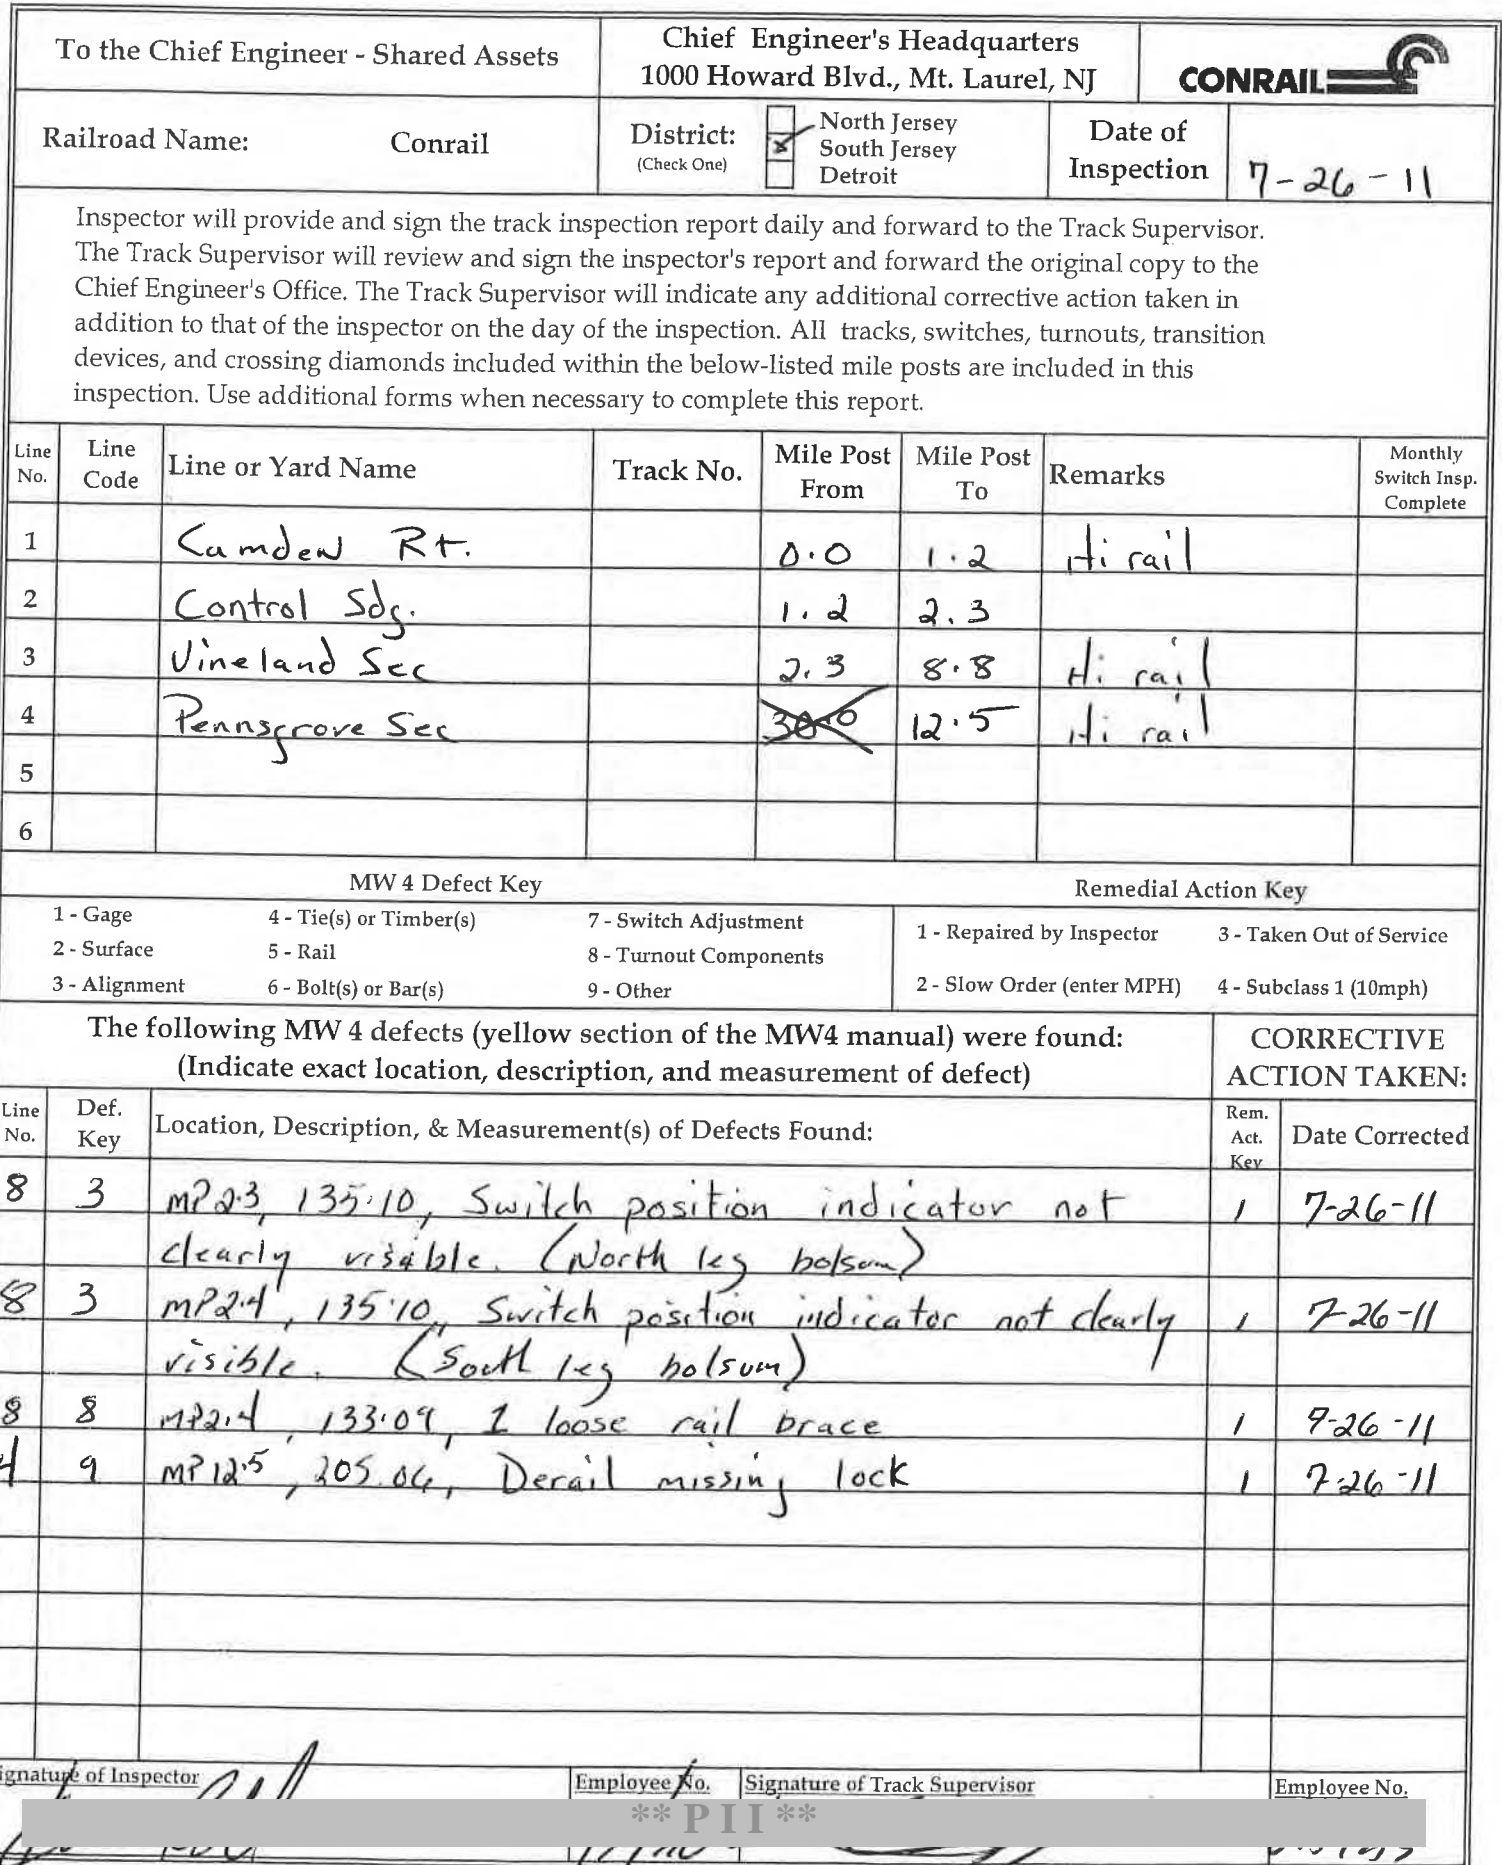 To the Chief Engineer - Shared Assets
Chief Engineer's Headquarters
1000 Howard Blvd., Mt. Laurel, NJ
CONRAIL
Railroad Name: Conrail
District:
(Check One)
North Jersey
South Jersey
Detroit
Date of
Inspection
7-26-11
Inspector will provide and sign the track inspection report daily and forward to the Track Supervisor.
The Track Supervisor will review and sign the inspector's report and forward the original copy to the
Chief Engineer's Office. The Track Supervisor will indicate any additional corrective action taken in
addition to that of the inspector on the day of the inspection. All tracks, switches, turnouts, transition
devices, and crossing diamonds included within the below-listed mile posts are included in this
inspection. Use additional forms when necessary to complete this report.
Line No. Line Code Line or Yard Name Track No. Mile Post From Mile Post To Remarks Monthly Switch Insp. Complete
1 Camden Rt. 0.0 1.2 Hi rail
2 Control Sdg. 1.2 2.3
3 Vineland Sec 2.3 8.8 Hi rail
4 Pennsgrove Sec 12.5 Hi rail
5
6
MW 4 Defect Key Remedial Action Key
1 - Gage 4 - Tie(s) or Timber(s) 7 - Switch Adjustment 1 - Repaired by Inspector 3 - Taken Out of Service
2 - Surface 5 - Rail 8 - Turnout Components
3 - Alignment 6 - Bolt(s) or Bar(s) 9 - Other 2 - Slow Order (enter MPH) 4 - Subclass 1 (10mph)
The following MW 4 defects (yellow section of the MW4 manual) were found:
(Indicate exact location, description, and measurement of defect)
CORRECTIVE
ACTION TAKEN:
Line No. Def. Key Location, Description, & Measurement(s) of Defects Found: Rem. Act. Key Date Corrected
8 3 MP2.3, 135.10, Switch position indicator not 1 7-26-11
clearly visible. (North leg bolsum)
8 3 MP2.4, 135.10, Switch position indicator not clearly 1 7-26-11
visible. (South leg bolsum)
8 8 MP2.4, 133.09, 1 loose rail brace 1 7-26-11
4 9 MP12.5, 205.04, Derail missing lock 1 7-26-11
ignature of Inspector Employee No. Signature of Track Supervisor Employee No.
** P I I **